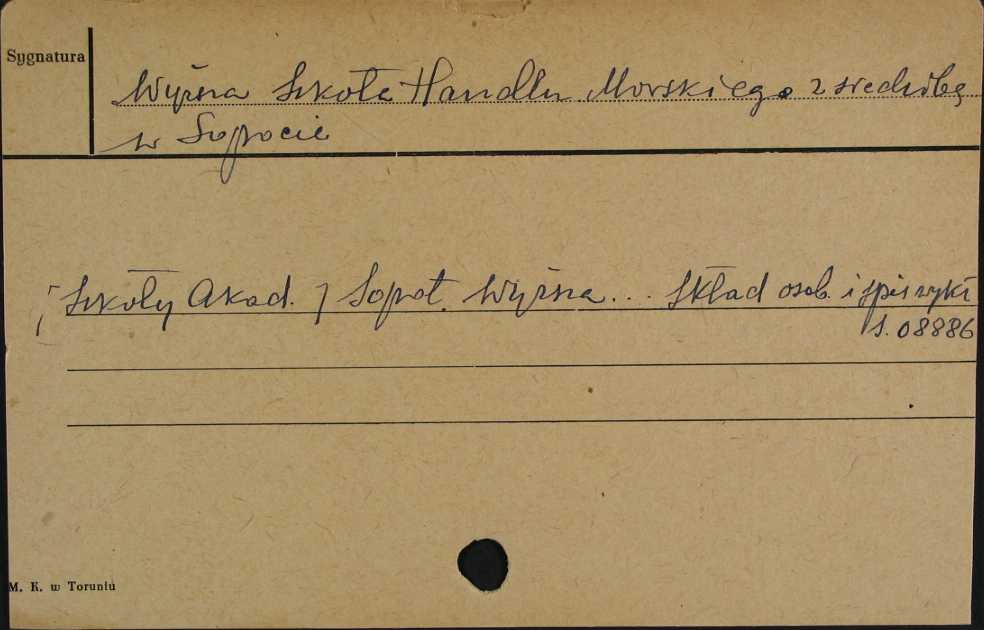 Sygnatura
Wyższa Szkoła Handlu Morskiego z siedzibą
w Sopocie
[Szkoły Akad.] Sopot. Wyższa... Skład osob. i spis wykł.
s. 08886
M. K. w Toruniu